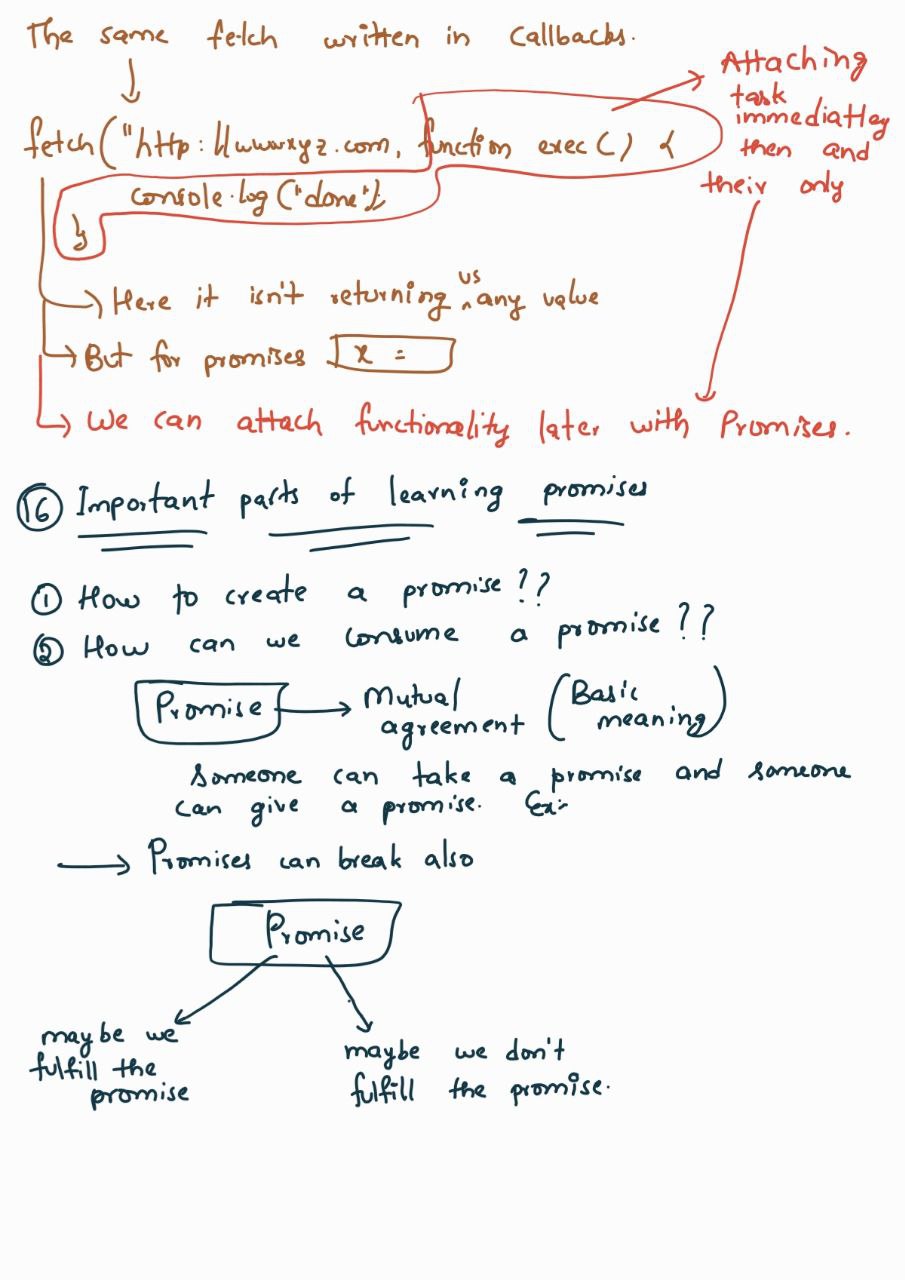 The same fetch written in Callbacks.
Attaching
task
immediatley
then and
their only
fetch("http://wwwxyz.com, function exec() {
console.log("done");
}
Here it isn't returning us any value
But for promises x =
We can attach functionality later with Promises.
16 Important parts of learning promises
1 How to create a promise??
2 How can we consume a promise??
Promise → Mutual agreement (Basic meaning)
Someone can take a promise and someone
can give a promise. Ex:-
→ Promises can break also
Promise
maybe we
fulfill the
promise
maybe we don't
fulfill the promise.